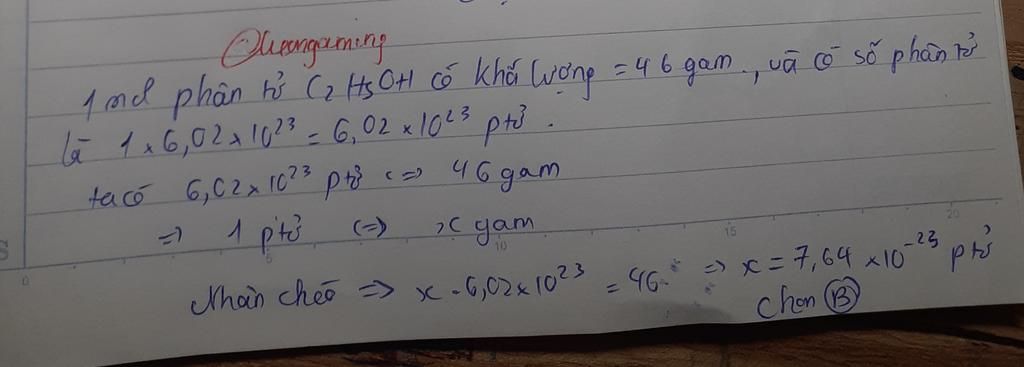 Quangaming
1 mol phân tử C2H5OH có khối lượng = 46 gam, và có số phân tử
là 1 x 6,02 x 10^23 = 6,02 x 10^23 ptử.
ta có 6,02 x 10^23 ptử <=> 46 gam
=> 1 ptử <=> x gam
5 10 15 20
0
S
Nhân chéo => x . 6,02 x 10^23 = 46 => x = 7,64 x 10^-23 ptử
Chọn B